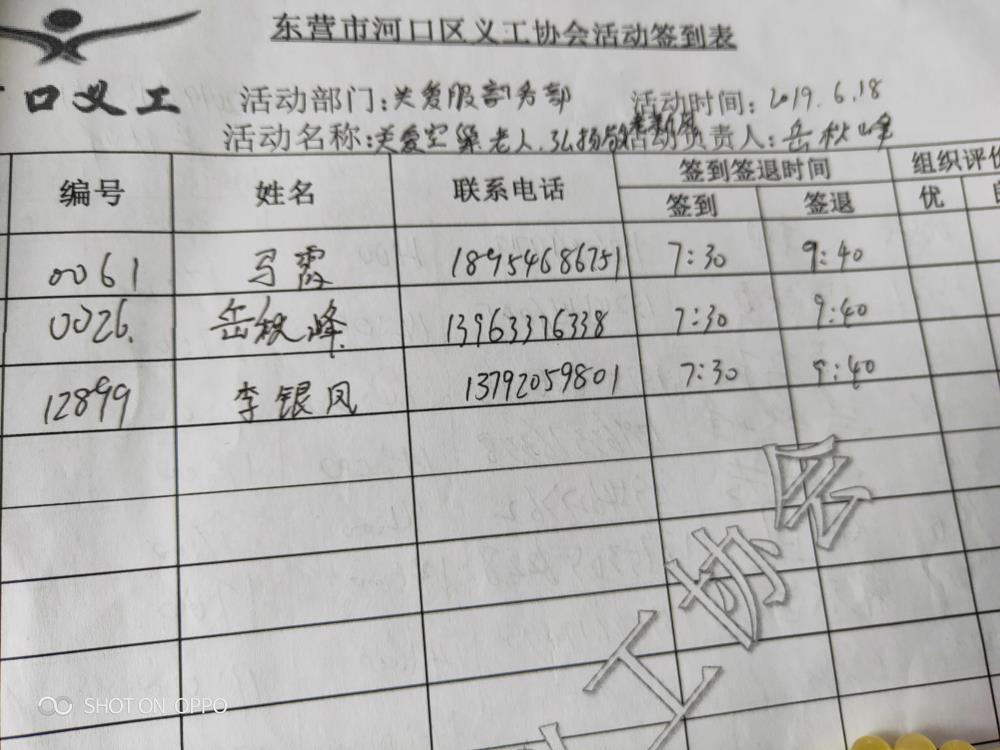 东营市河口区义工协会活动签到表
口义工
活动部门:关爱服务部 活动时间:2019.6.18
活动名称:关爱空巢老人.弘扬 活动负责人:岳秋峰
编号 姓名 联系电话 签到签退时间 组织评价
签到 签退 优
0061 马霞 18954686751 7:30 9:40
0026. 岳秋峰 13963376338 7:30 9:40
12899 李银凤 13792059801 7:30 9:40
区
协
工
SHOT ON OPPO